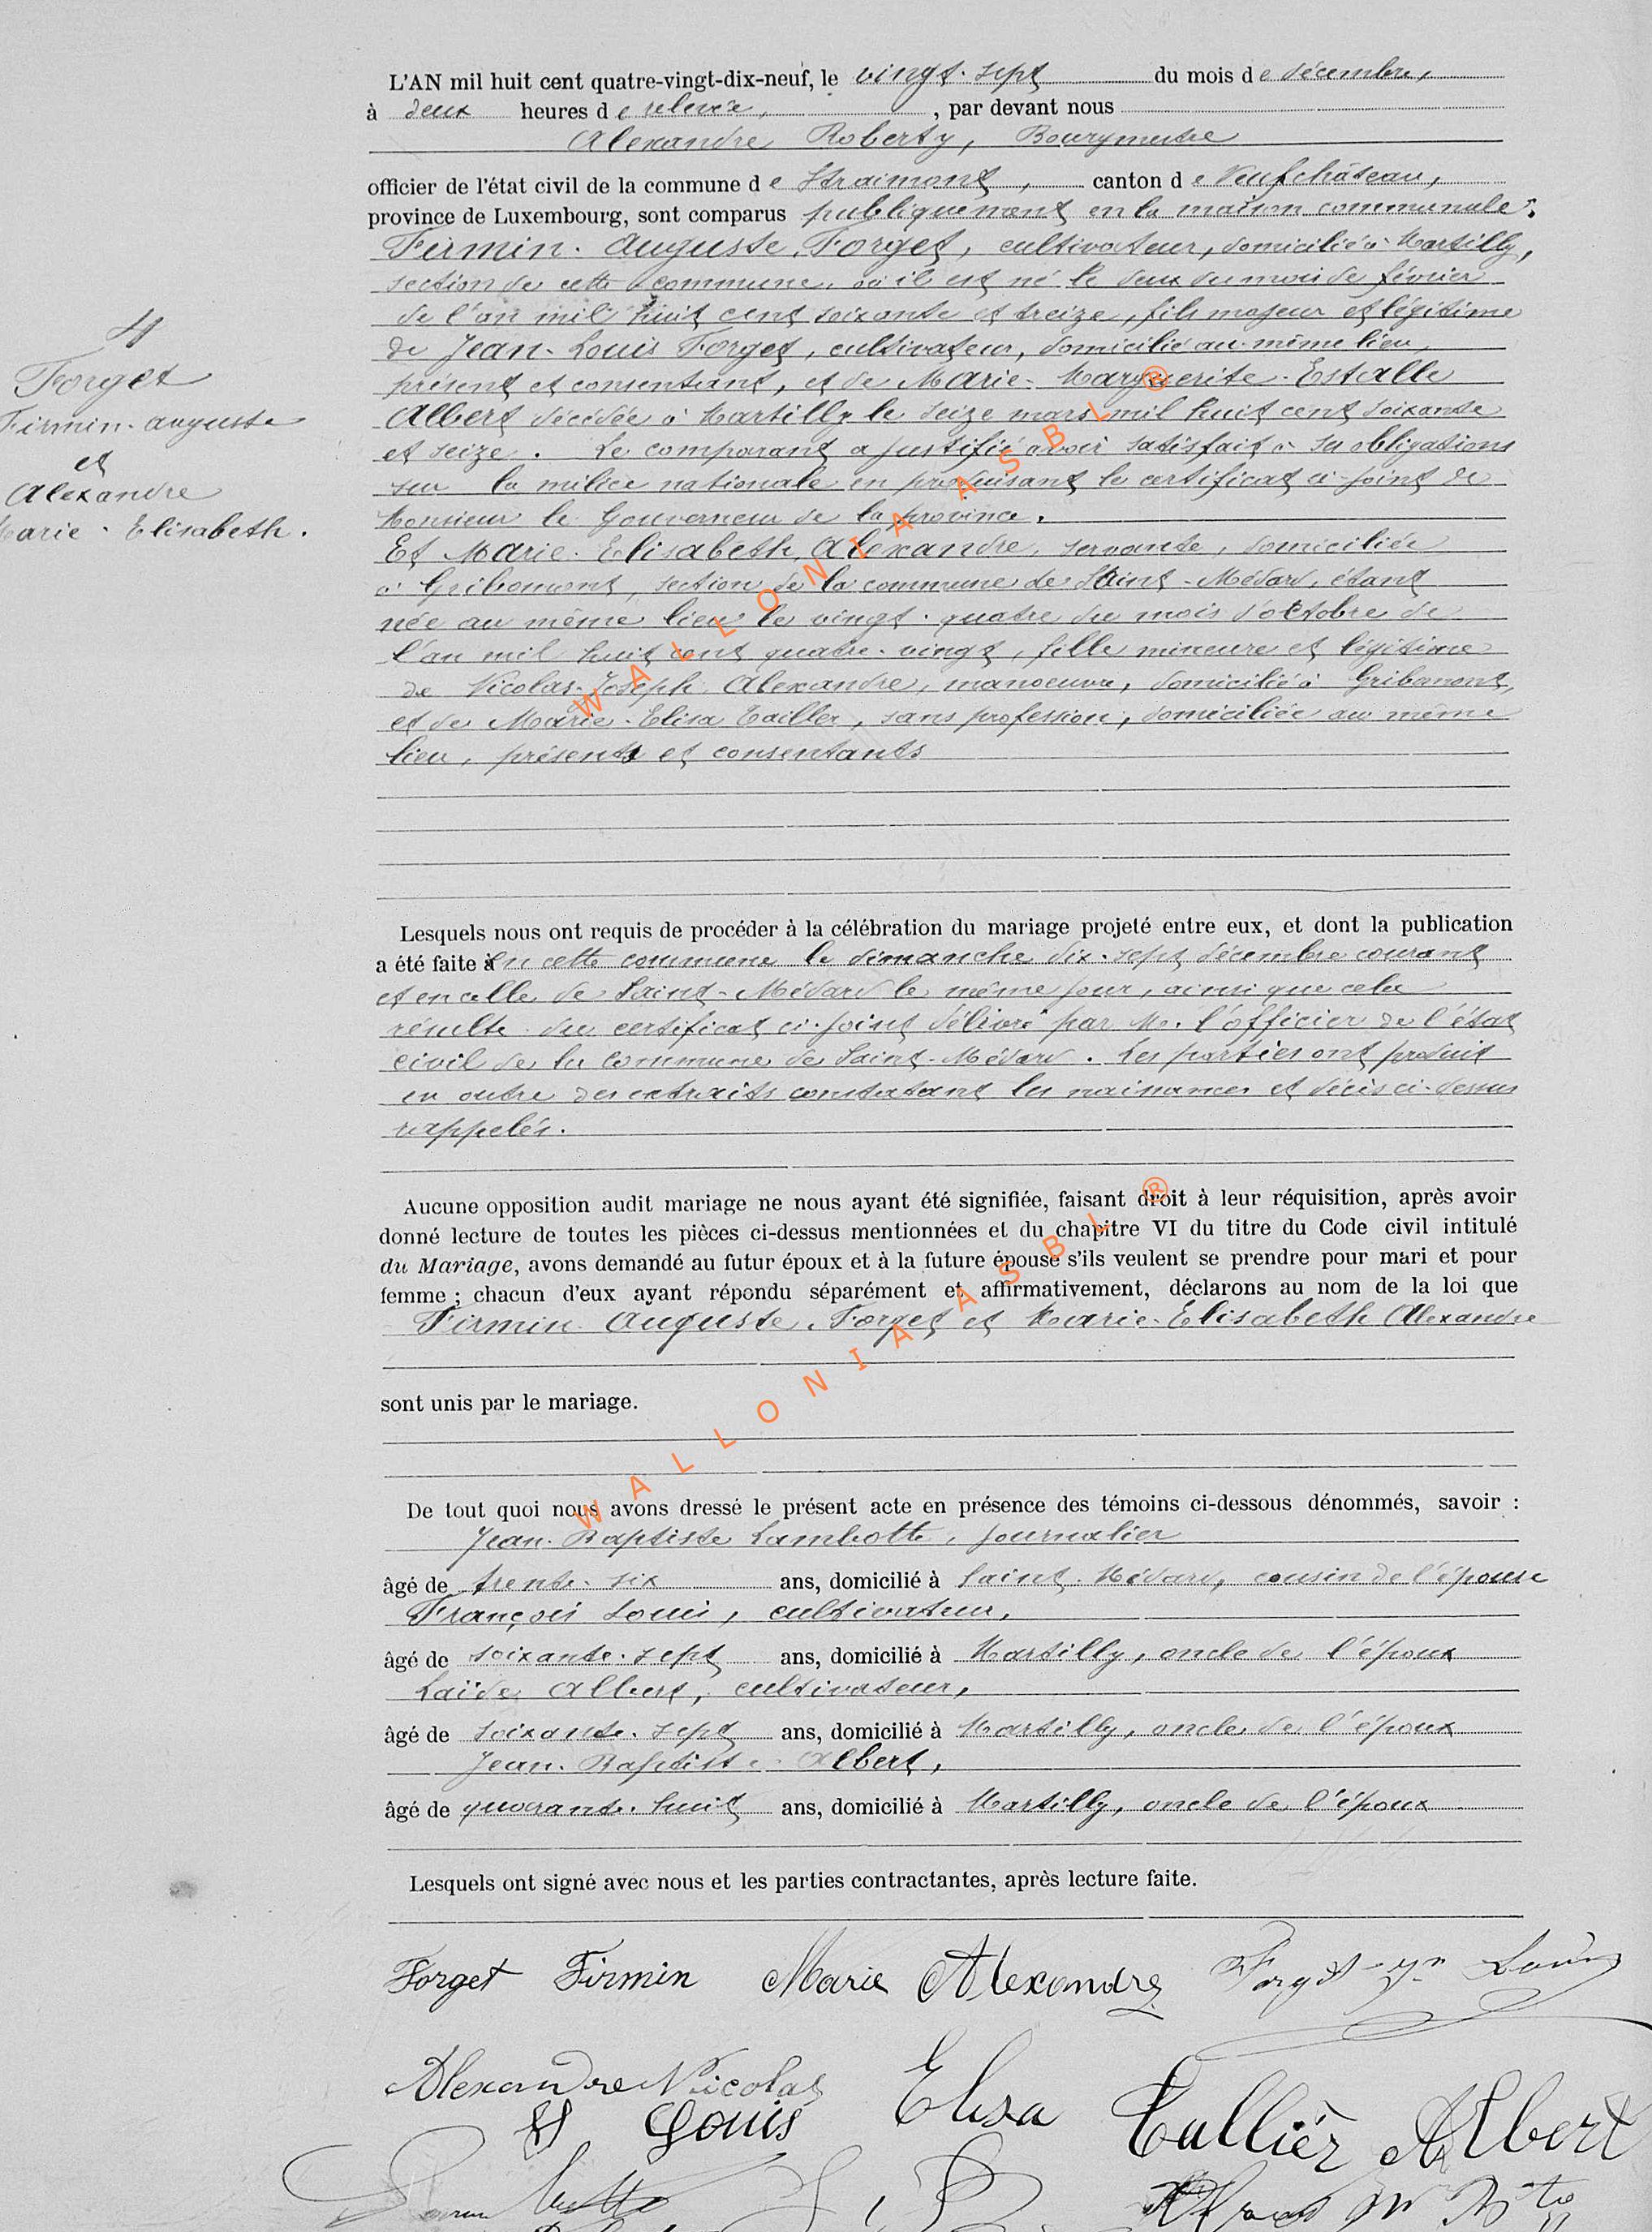 L'AN mil huit cent quatre-vingt-dix-neuf, le vingt-sept du mois de décembre,
à deux heures de relevée, , par devant nous
Alexandre Roberty, Bourgmestre
officier de l'état civil de la commune de Straimont, canton de Neufchâteau,
province de Luxembourg, sont comparus publiquement en la maison communale:
Firmin-Auguste Forget, cultivateur, domicilié à Martilly,
section de cette commune, où il est né le deux du mois de février
de l'an mil huit cent soixante et treize, fils majeur et légitime
de Jean-Louis Forget, cultivateur, domicilié au même lieu,
présent et consentant, et de Marie-Marguerite-Estalle
Albert décédée à Martilly le seize mars mil huit cent soixante
et seize. Le comparant a justifié avoir satisfait à ses obligations
sur la milice nationale en produisant le certificat ci-joint de
Monsieur le Gouverneur de la province.
Et Marie-Elisabeth Alexandre, servante, domiciliée
à Gribomont, section de la commune de Saint-Médard, étant
née au même lieu le vingt-quatre du mois d'octobre de
l'an mil huit cent quatre-vingt, fille mineure et légitime
de Nicolas-Joseph Alexandre, manoeuvre, domicilié à Gribomont,
et de Marie-Elisa Tailler, sans profession, domiciliée au même
lieu, présents et consentants
4
Forget
Firmin-auguste
et
Alexandre
Marie-Elisabeth.
Lesquels nous ont requis de procéder à la célébration du mariage projeté entre eux, et dont la publication
a été faite à en cette commune le dimanche dix-sept décembre courant
et en celle de Saint-Médard le même jour, ainsi que cela
résulte du certificat ci-joint délivré par M. l'officier de l'état
civil de la commune de Saint-Médard. Les parties ont produit
en outre des extraits constatant les naissances et décès ci-dessus
rappelés.
Aucune opposition audit mariage ne nous ayant été signifiée, faisant droit à leur réquisition, après avoir
donné lecture de toutes les pièces ci-dessus mentionnées et du chapitre VI du titre du Code civil intitulé
du Mariage, avons demandé au futur époux et à la future épouse s'ils veulent se prendre pour mari et pour
femme ; chacun d'eux ayant répondu séparément et affirmativement, déclarons au nom de la loi que
Firmin-Auguste Forget et Marie-Elisabeth Alexandre
sont unis par le mariage.
De tout quoi nous avons dressé le présent acte en présence des témoins ci-dessous dénommés, savoir :
Jean-Baptiste Lambotte, journalier
âgé de trente-six ans, domicilié à Saint-Médard, cousin de l'épouse
François Louis, cultivateur,
âgé de soixante-sept ans, domicilié à Martilly, oncle de l'époux
Laïde Albert, cultivateur,
âgé de soixante-sept ans, domicilié à Martilly, oncle de l'époux
Jean-Baptiste Albert,
âgé de quarante-huit ans, domicilié à Martilly, oncle de l'époux
Lesquels ont signé avec nous et les parties contractantes, après lecture faite.
Forget Firmin Marie Alexandre Forget Jn Louis
Alexandre Nicolas Elisa Tallier Albert
Louis
WALLONIA ASBL ®
WALLONIA ASBL ®